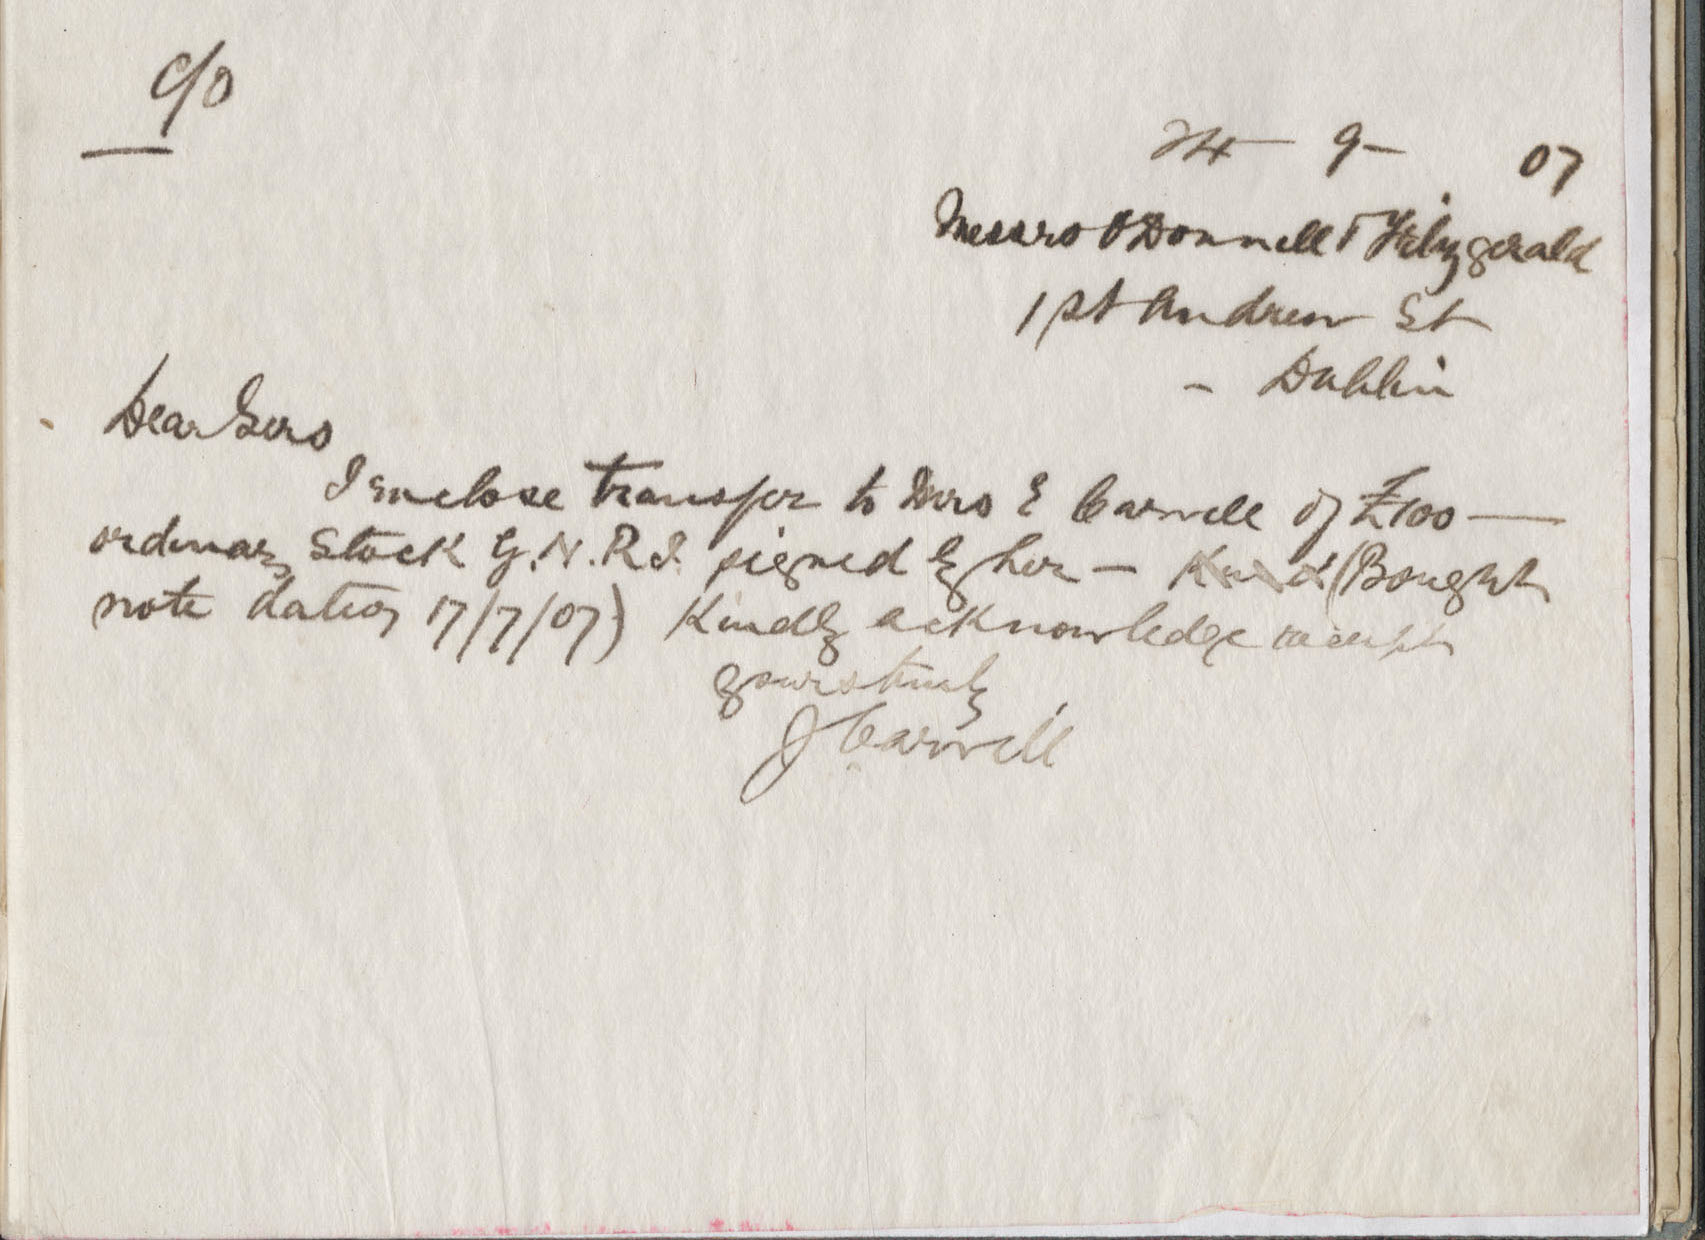 c/o
24 - 9 - 07
Messrs O'Donnell & Fitzgerald
1 St Andrew St
- Dublin
Dear Sirs
I enclose transfer to Mrs E Carvill of £100 —
ordinary Stock G.N.R.I. signed by her — Kind (Bought
note dated 17/7/07) Kindly acknowledge receipt
yours truly
J Carvill